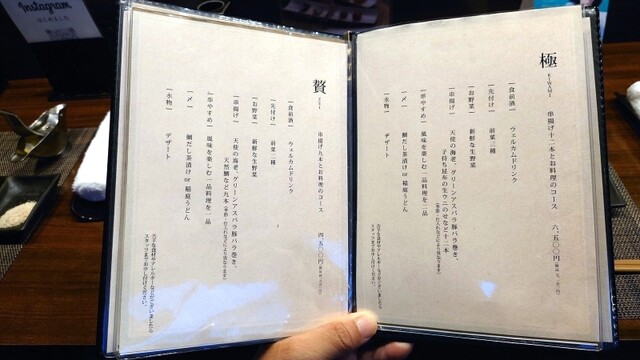 Instagram
はじめました
極
KIWAMI
串揚げ十二本とお料理のコース 六、五〇〇円
［食前酒］ ウェルカムドリンク
［先付け］ 前菜三種
［お野菜］ 新鮮な生野菜
［串揚げ］ 天使の海老、グリーンアスパラ豚バラ巻き、
子持ち昆布の生ウニのせなど十二本
［串やすめ］ 風味を楽しむ一品料理を二品
［〆］ 鯛だし茶漬け or 稲庭うどん
［水物］ デザート
贅
ZEI
串揚げ九本とお料理のコース 四、五〇〇円
［食前酒］ ウェルカムドリンク
［先付け］ 前菜二種
［お野菜］ 新鮮な生野菜
［串揚げ］ 天使の海老、グリーンアスパラ豚バラ巻き、
天然鯛など九本
［串やすめ］ 風味を楽しむ一品料理を一品
［〆］ 鯛だし茶漬け or 稲庭うどん
［水物］ デザート
苦手な食材やアレルギーなどございましたら
スタッフまでお申し付けください。